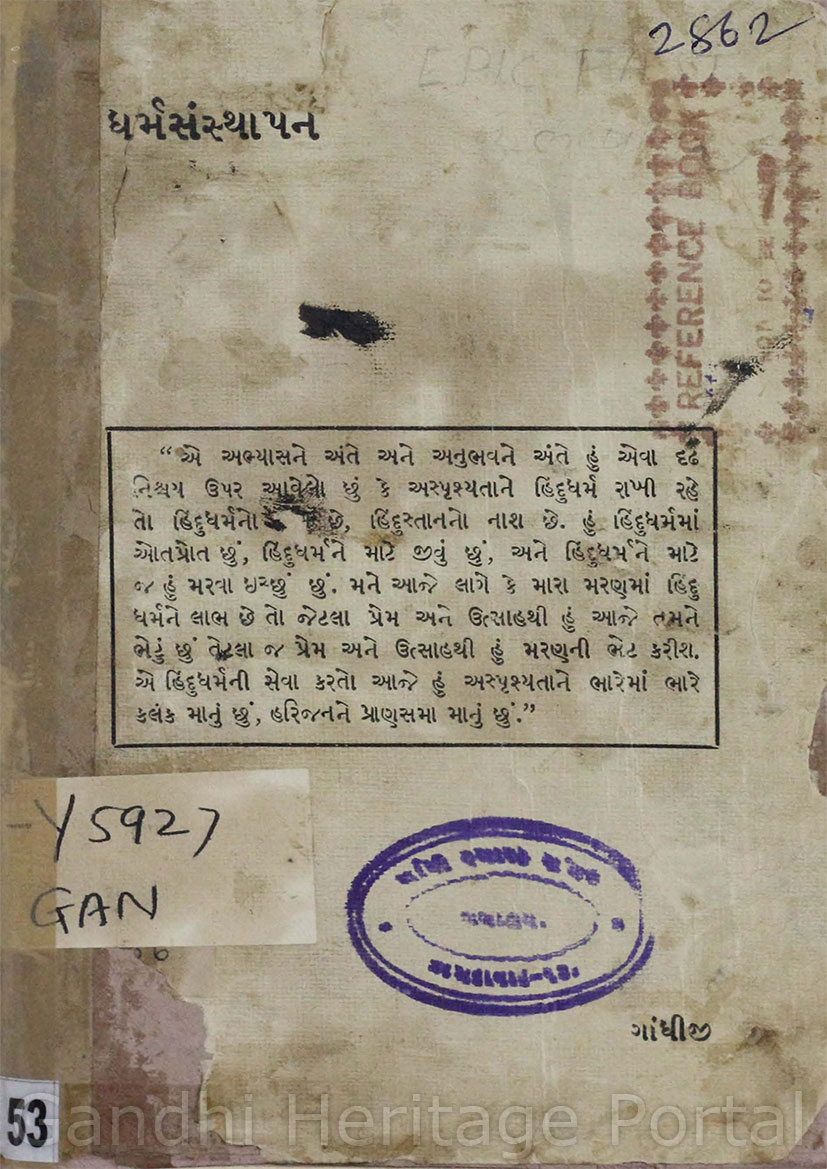 2862
EPIC FA
ધર્મસંસ્થાપન
REFERENCE BOOK
NOT TO BE
“એ અભ્યાસને અંતે અને અનુભવને અંતે હું એવા દૃઢ
નિશ્ચય ઉપર આવેલો છું કે અસ્પૃશ્યતાને હિંદુધર્મ રાખી રહે
તો હિંદુધર્મનો છે, હિંદુસ્તાનનો નાશ છે. હું હિંદુધર્મમાં
ઓતપ્રોત છું, હિંદુધર્મને માટે જીવું છું, અને હિંદુધર્મને માટે
જ હું મરવા ઇચ્છું છું. મને આજે લાગે કે મારા મરણમાં હિંદુ
ધર્મને લાભ છે તો જેટલા પ્રેમ અને ઉત્સાહથી હું આજે તમને
ભેટું છું તેટલા જ પ્રેમ અને ઉત્સાહથી હું મરણની ભેટ કરીશ.
એ હિંદુધર્મની સેવા કરતો આજે હું અસ્પૃશ્યતાને ભારેમાં ભારે
કલંક માનું છું, હરિજનને પ્રાણસમા માનું છું.”
-Y5927
GAN
ગાંધીજી
53
Gandhi Heritage Portal